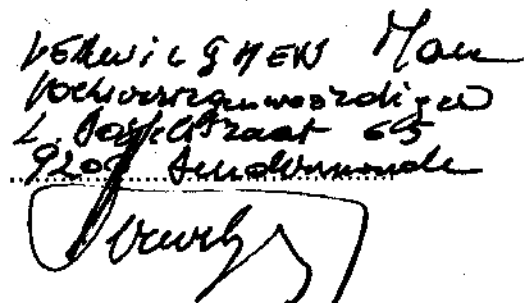 VERWILGHEN Marc
Volksvertegenwoordiger
L. straat 65
9200 Dendermonde